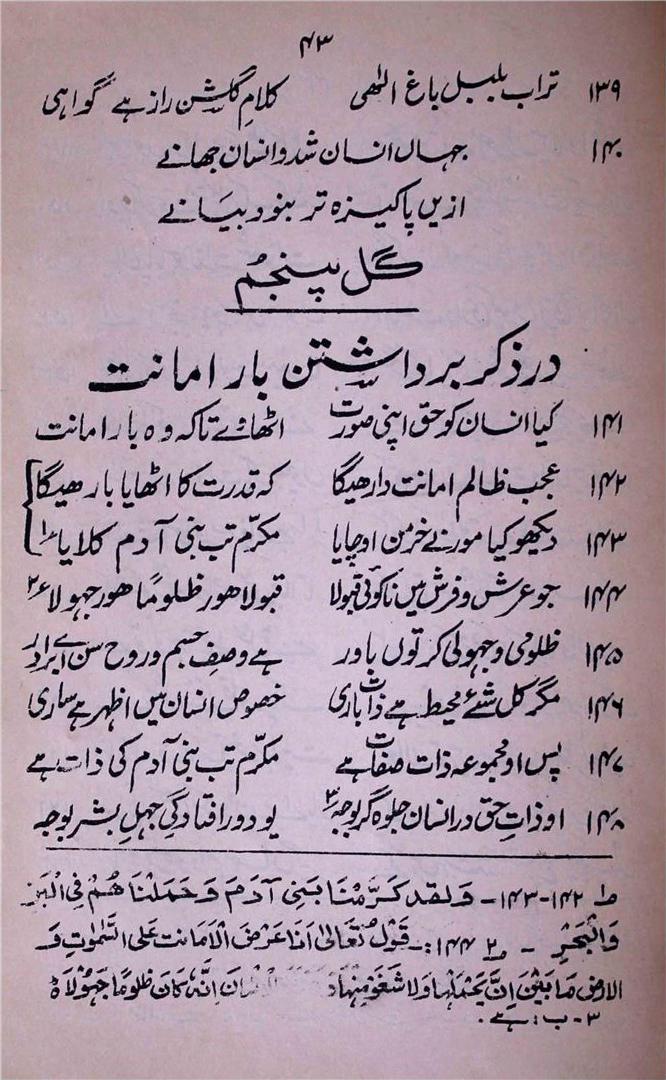 ۴۳
۱۳۹ تراب بلبل باغ الٰهی کلامِ گلشن راز ہے گواہی
۱۴۰ جہاں انسان شد و انسان جھانے
ازیں پاکیزہ تر بنود بیانے
گل پنجم
در ذکر برداشتن بار امانت
۱۴۱ کیا انسان کو حق اپنی صورت اٹھاۓ تاکہ وہ بار امانت
۱۴۲ عجب ظالم امانت دار ھیگا کہ قدرت کا اٹھایا بار ھیگا
۱۴۳ دیکھو کیا مور نے خرمن اوچایا مکرّم تب بنی آدم کلایا ؎۱
۱۴۴ جو عرش و فرش میں نا کوئی قبولا قبولا ھور ظلوماً ھور جہولا ؎۲
۱۴۵ ظلومی و جہولی کر توں باور ہے وصفِ جسم و روح سن اے برادر
۱۴۶ مگر کل شئے محیط ہے ذات باری خصوص انسان میں اظہر ہے ساری
۱۴۷ پس او مجموعہ ذات صفات ہے مکرّم تب بنی آدم کی ذات ہے
۱۴۸ او ذاتِ حق در انسان جلوہ گر بوجہ ؎۳ یو دور افتادگی جہلِ بشر بوجہ
؎۱ ۱۴۲-۱۴۳ - وَلقد کَرَّمْنَا بَنِی آدَمَ وَحَمَلْنَا هُمْ فِی الْبَرِّ
وَالْبَحْرِ - ؎۲ ۱۴۴ :- قَولُ تَعَالٰی اَنَا عَرَضَ الْاَمَانت عَلی السَّمٰوٰتِ وَ
الارضِ مَا بَیْنَ اِنَّ یَحْمَلَهَا وَلَا شَغَوَ مِنْهَا اِنَّهٗ کَانَ ظَلُومًا جَهُوْلَاہ
۳ - ب : ہے .